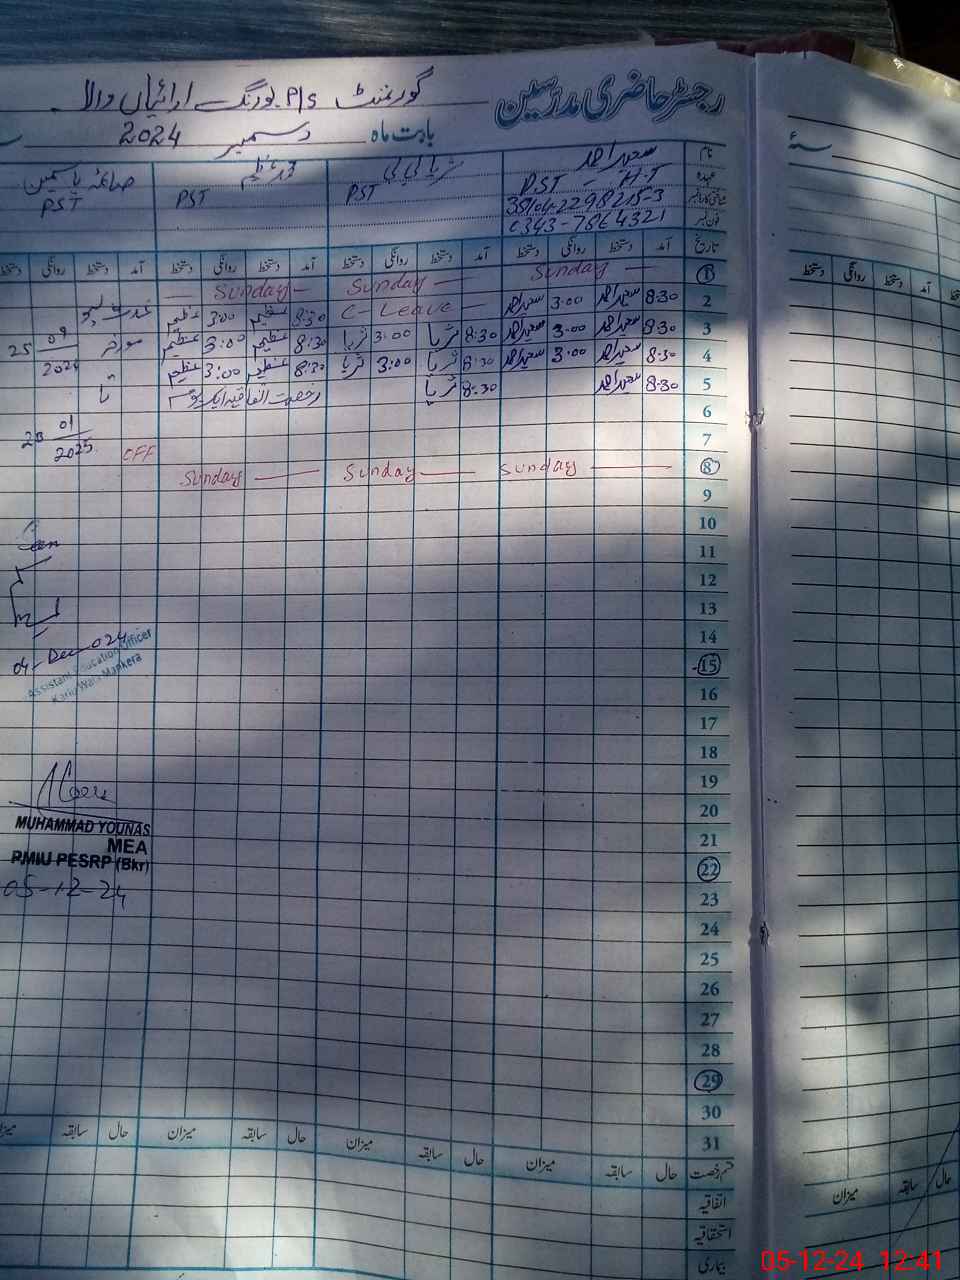 رجسٹر حاضری مدرسین
گورنمنٹ P/S بورنگ ارائیاں والا
بابت ماہ دسمبر 2024
سنہ
نام سعید احمد ثریا بی بی محمد عظیم صائمہ یاسمین
عہدہ PST - H.T PST PST PST
شناختی کارڈ نمبر 38104-2298215-3
فون نمبر 0343-7864321
تاریخ آمد دستخط روانگی دستخط آمد دستخط روانگی دستخط آمد دستخط روانگی دستخط آمد دستخط روانگی دستخط
1 Sunday Sunday Sunday
2 8:30 سعید احمد 3:00 سعید احمد C-Leave 8:30 عظیم 3:00 عظیم
3 8:30 سعید احمد 3:00 سعید احمد 8:30 ثریا 3:00 ثریا 8:30 عظیم 3:00 عظیم مورخہ 25 09
4 8:30 سعید احمد 3:00 سعید احمد 8:30 ثریا 3:00 ثریا 8:30 عظیم 3:00 عظیم 2024
5 8:30 سعید احمد 8:30 ثریا رخصت اتفاقیہ ایک یوم تا
6 01
7 2025 OFF
8 Sunday Sunday Sunday
9
10
11
12
13
14
15
16
17
18
19
20
21
22
23
24
25
26
27
28
29
30
31
04-Dec-024
Assistant Education Officer
MUHAMMAD YOUNAS
MEA
PMIU PESRP (Bkr)
05-12-24
قسم رخصت حال سابقہ میزان حال سابقہ میزان حال سابقہ میزان حال سابقہ میزان
اتفاقیہ
استحقاقیہ
بیماری
دستخط روانگی دستخط آمد
میزان سابقہ حال
05-12-24 12:41